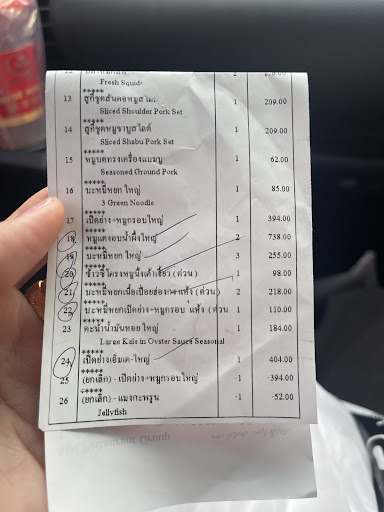 Fresh Squid
*****
13 สุกี้ชุดสันคอหมูสไลด์ 1 209.00
Sliced Shoulder Pork Set
*****
14 สุกี้ชุดหมูชาบูสไลด์ 1 209.00
Sliced Shabu Pork Set
*****
15 หมูบดทรงเครื่องแบมบู 1 62.00
Seasoned Ground Pork
*****
16 บะหมี่หยก ใหญ่ 1 85.00
3 Green Noodle
*****
17 เป็ดย่าง+หมูกรอบใหญ่ 1 394.00
*****
18 หมูแดงอบน้ำผึ้งใหญ่ 2 738.00
*****
19 บะหมี่หยก ใหญ่ 3 255.00
*****
20 ซี่โครงหมูนึ่งเต้าเจี้ยว (ด่วน) 1 98.00
*****
21 บะหมี่หยกเนื้อเปื่อยฮ่องกง แห้ง (ด่วน) 2 218.00
*****
22 บะหมี่หยกเป็ดย่าง+หมูกรอบ แห้ง (ด่วน 1 110.00
23 คะน้าน้ำมันหอย ใหญ่ 1 184.00
Large Kale in Oyster Sauce Seasonal
*****
24 เป็ดย่างเอ็มเค-ใหญ่ 1 404.00
*****
25 (ยกเลิก) - เป็ดย่าง+หมูกรอบใหญ่ -1 -394.00
*****
26 (ยกเลิก) - แมงกะพรุน -1 -52.00
Jellyfish